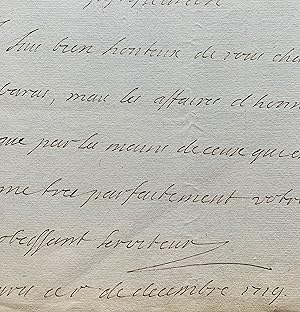 suis bien honteux de vous cha
baras, mais les affaires d'honn
que par les mains de ceux qui e
me tres parfaitement votre
obeissant serviteur
ce 1r de decembre 1719.